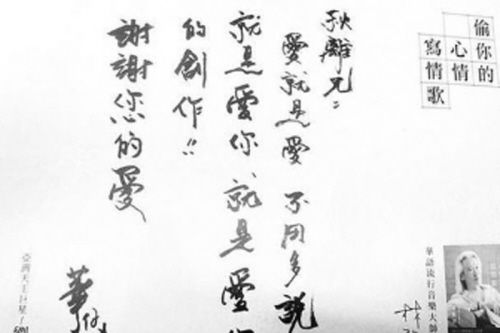 偷你的
心情
寫情歌
華語流行音樂大
林
秋離兄:
愛就是愛 不用多說
就是愛你 就是愛
的創作!!
謝謝您的愛
華仔
亞洲天王巨星/